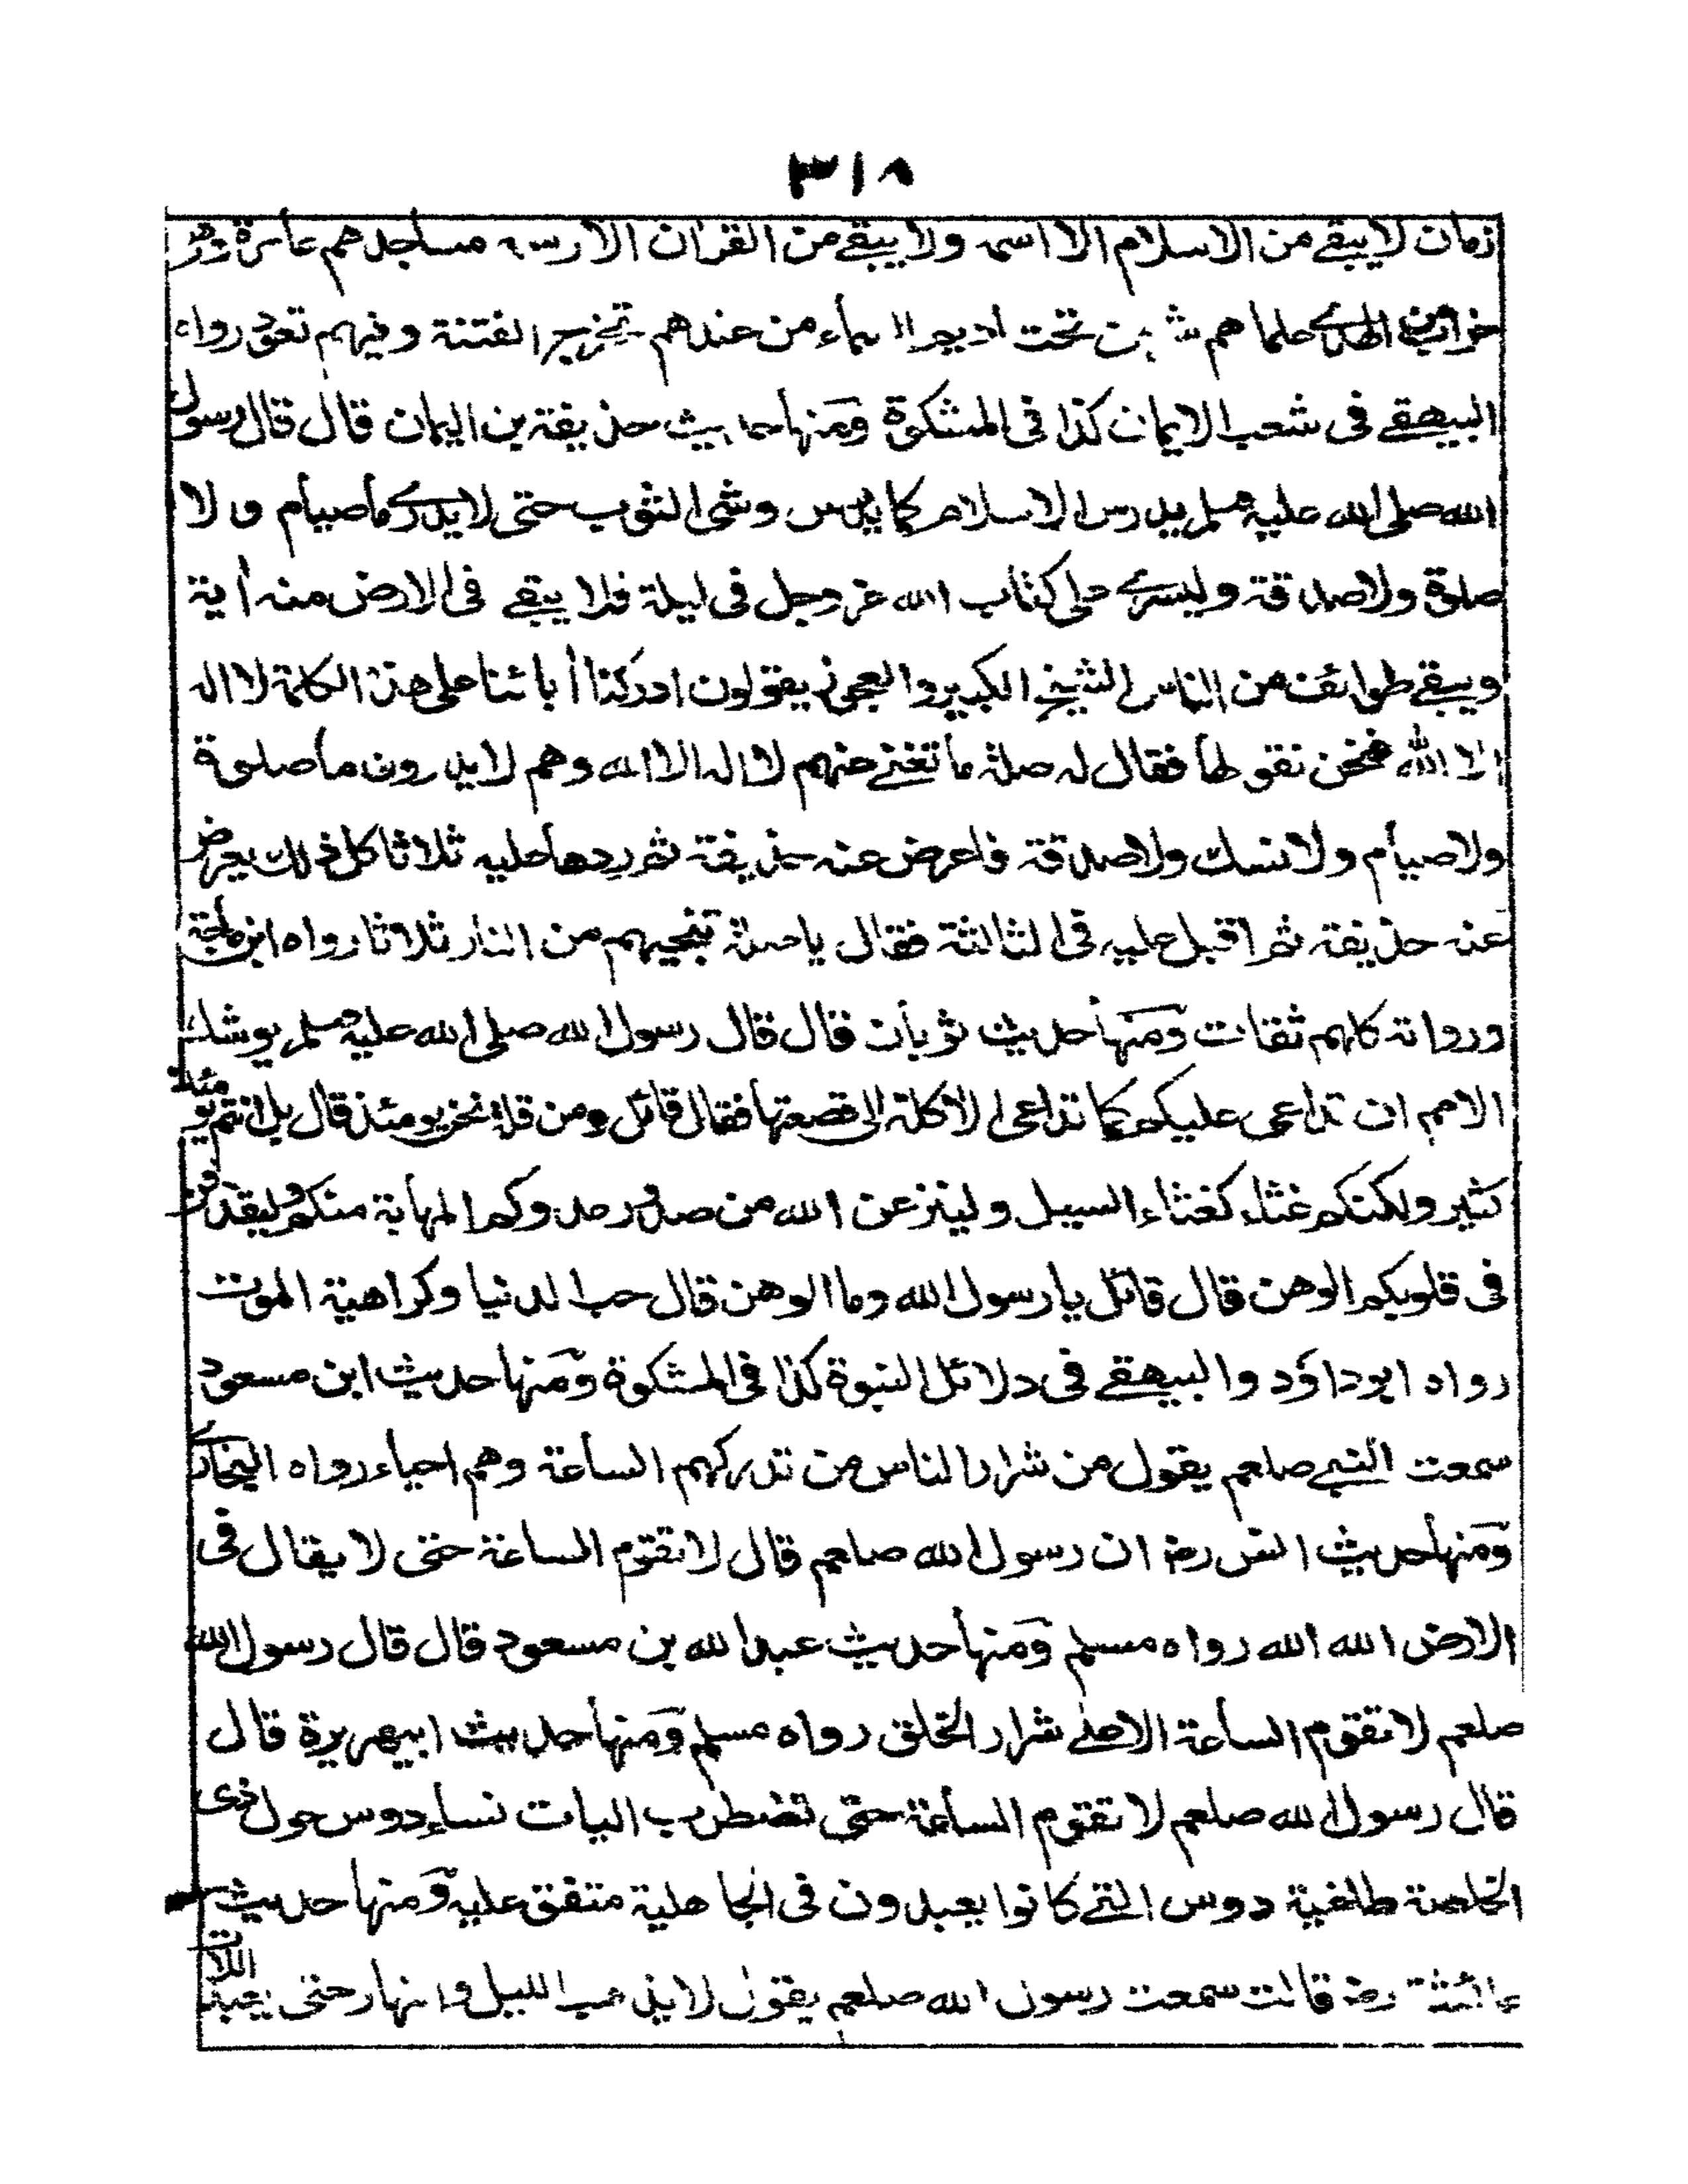 ٣١٨
زمان لا يبقے من الاسلام الا اسمه ولا يبقے من القران الا رسمه مساجدهم عامرة وهى
خراب من الهدے علماءهم شر من تحت اديم السماء من عندهم تخرج الفتنة وفيهم تعود رواه
البيهقے فى شعب الايمان كذا فى المشكوة ومنها حديث حذيفة بن اليمان قال قال رسول
الله صلى الله عليه وسلم يدرس الاسلام كما يدرس وشى الثوب حتى لا يدرے ما صيام ولا
صلوة ولا صدقة وليسرے على كتاب الله عز وجل فى ليلة فلا يبقے فى الارض منه أية
ويبقے طوائف من الناس الشيخ الكبير والعجوز يقولون ادركنا أبائنا على هذه الكلمة لا اله
الا الله فنحن نقولها فقال له صلة ما تغنے عنهم لا اله الا الله وهم لا يدرون ما صلوة
ولا صيام ولا نسك ولا صدقة فاعرض عنه حذيفة ثم ردها عليه ثلاثا كل ذلك يعرض
عنه حذيفة ثم اقبل عليه فى الثالثة فقال يا صلة تنجيهم من النار ثلاثا رواه ابن ماجة
ورواته كلهم ثقات ومنها حديث ثوبان قال قال رسول الله صلى الله عليه وسلم يوشك
الامم ان تداعى عليكم كما تداعى الاكلة الى قصعتها فقال قائل ومن قلة نحن يومئذ قال بل انتم يومئذ
كثير ولكنكم غثاء كغثاء السيل ولينزعن الله من صدور عدوكم المهابة منكم وليقذفن
فى قلوبكم الوهن قال قائل يا رسول الله وما الوهن قال حب الدنيا وكراهية الموت
رواه ابوداؤد والبيهقے فى دلائل النبوة كذا فى المشكوة ومنها حديث ابن مسعود
سمعت النبے صلعم يقول من شرار الناس من تدركهم الساعة وهم احياء رواه البخارے
ومنها حديث انس رضـ ان رسول الله صلعم قال لا تقوم الساعة حتى لا يقال فى
الارض الله الله رواه مسلم ومنها حديث عبد الله بن مسعود قال قال رسول الله
صلعم لا تقوم الساعة الا علے شرار الخلق رواه مسلم ومنها حديث ابيهريرة قال
قال رسول الله صلعم لا تقوم الساعة حتى تضطرب اليات نساء دوس حول ذى
الخلصة طاغية دوس التے كانوا يعبدون فى الجاهلية متفق عليه ومنها حديث
عائشة رضـ قالت سمعت رسول الله صلعم يقول لا يذهب الليل والنهار حتى يعبد اللات